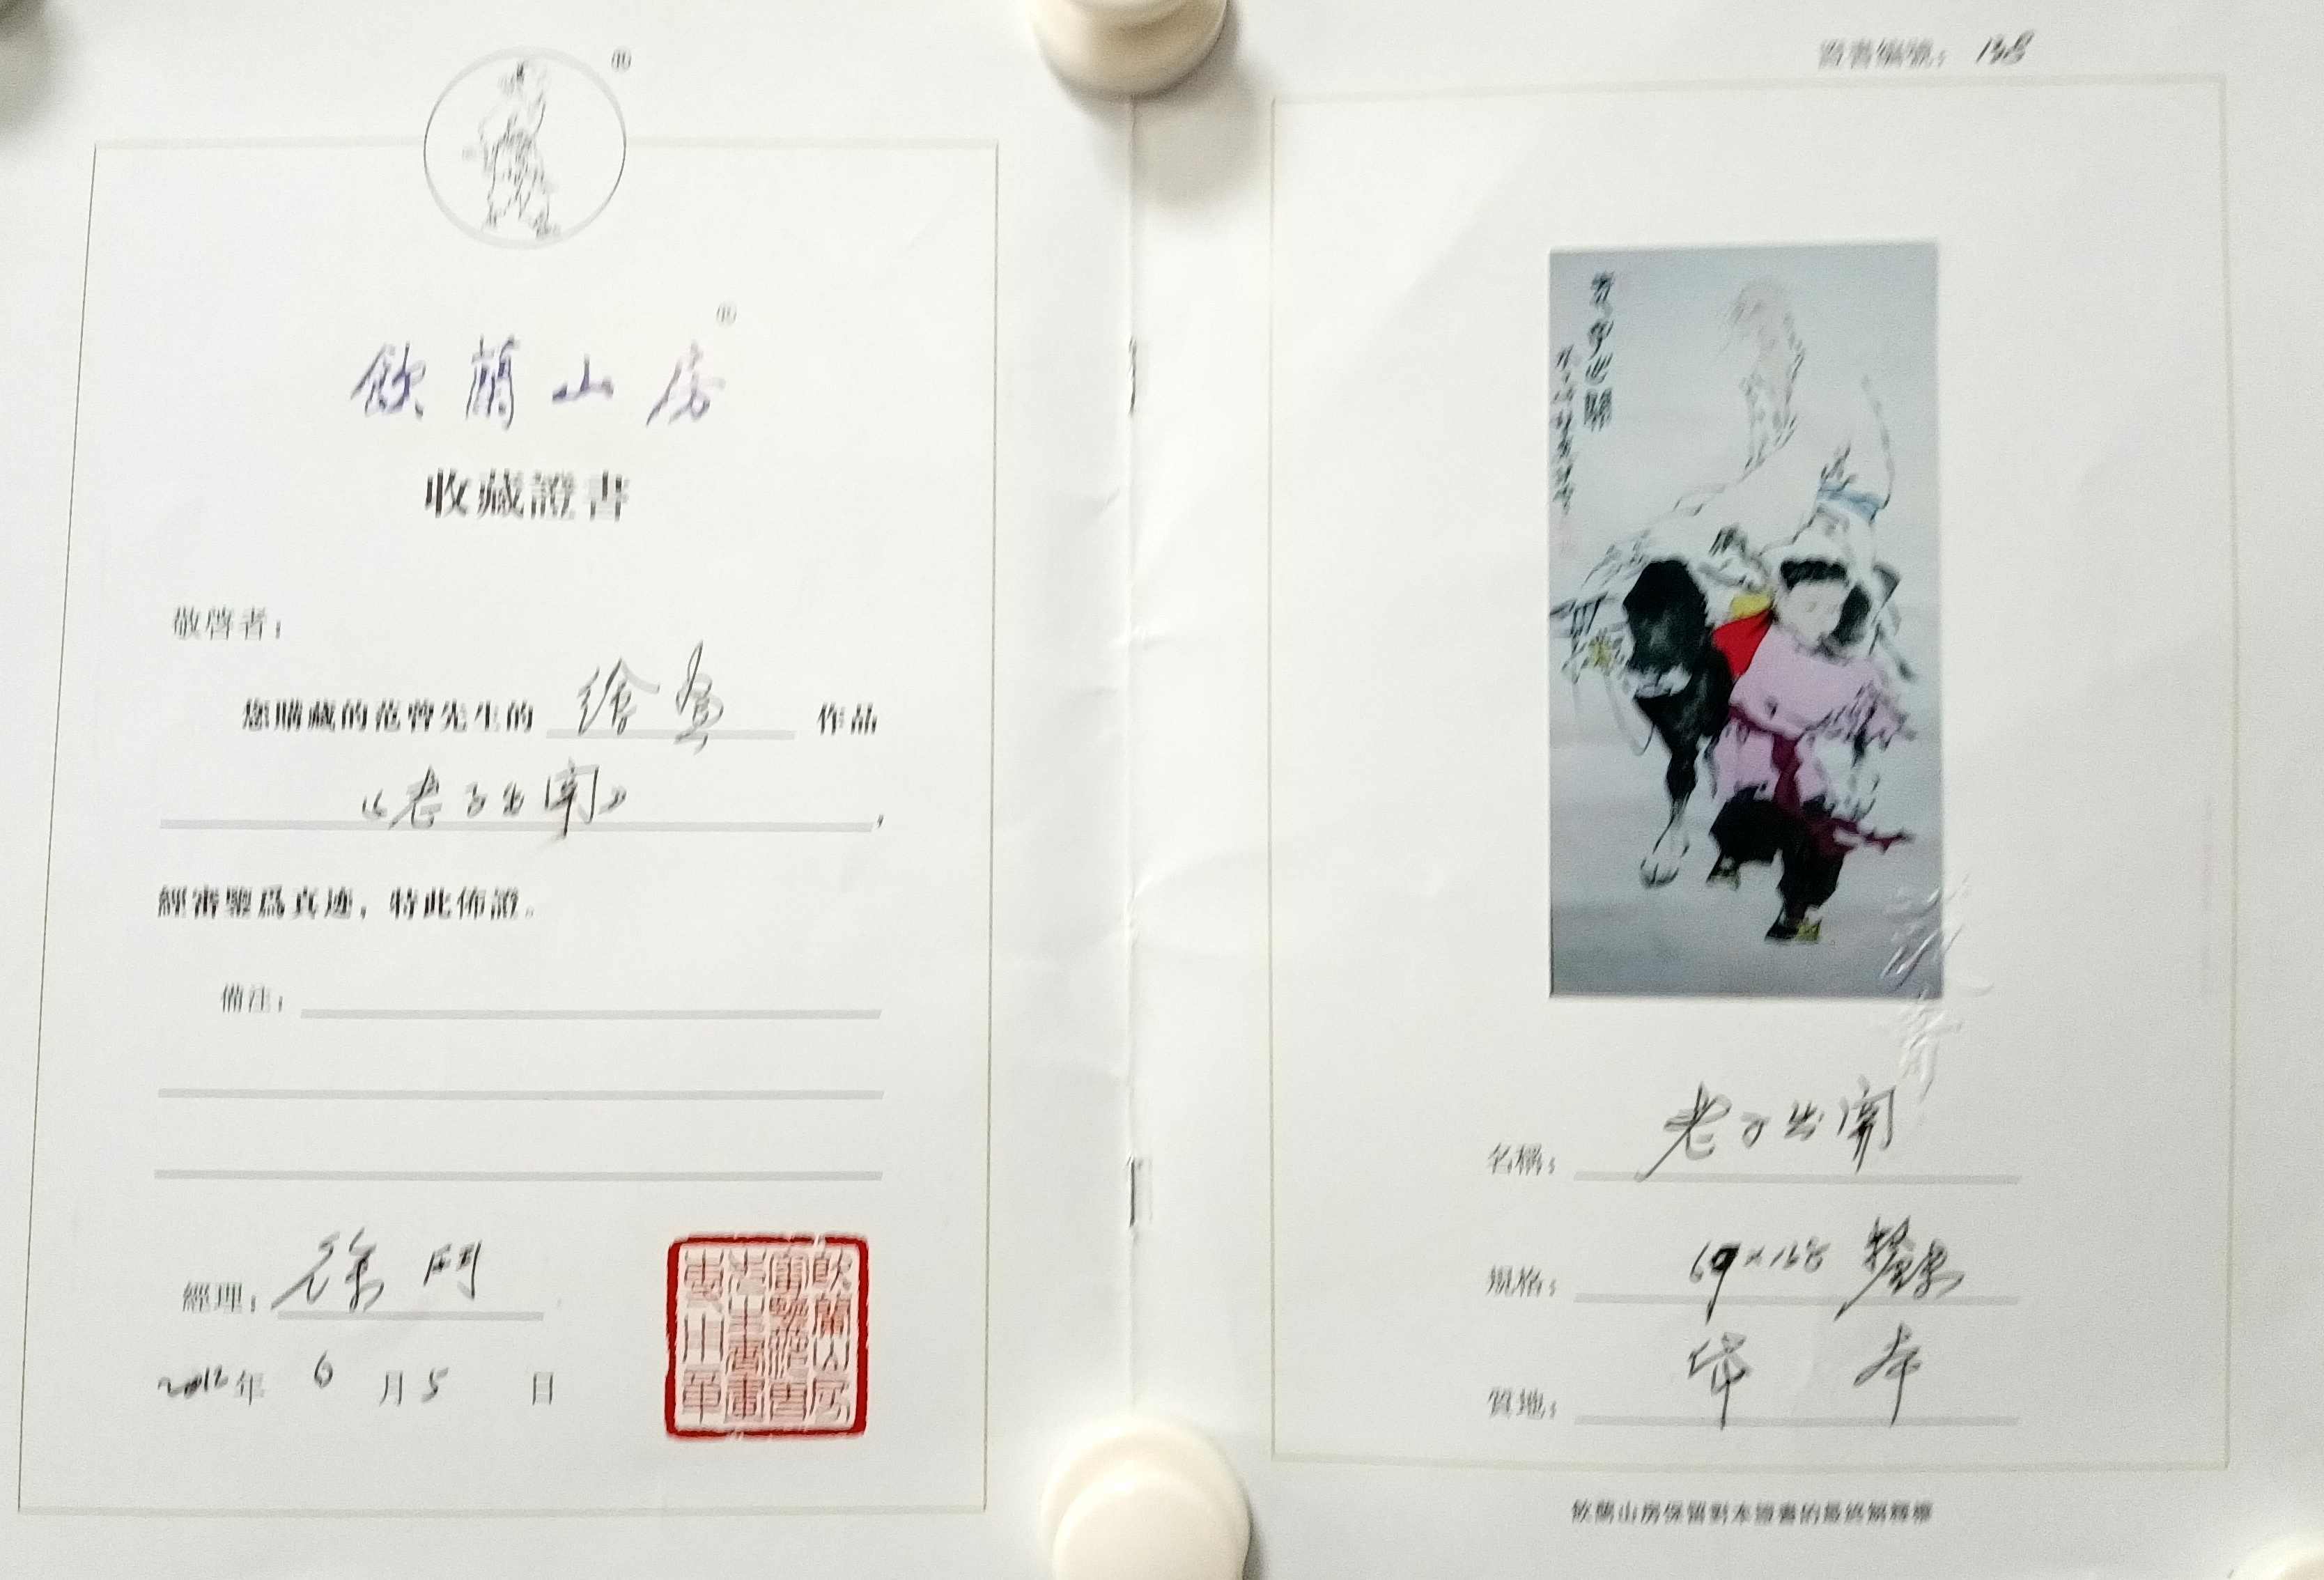 飲蘭山房
收藏證書
敬啓者：
您購藏的范曾先生的 繪畫 作品
《老子出関》，
經審鑒爲真迹，特此佈證。
備注：
經理：徐
2012年 6 月 5 日
證書編號：138
老子出關
名稱：老子出関
規格：69×168
質地：
飲蘭山房保留對本證書的最終解釋權